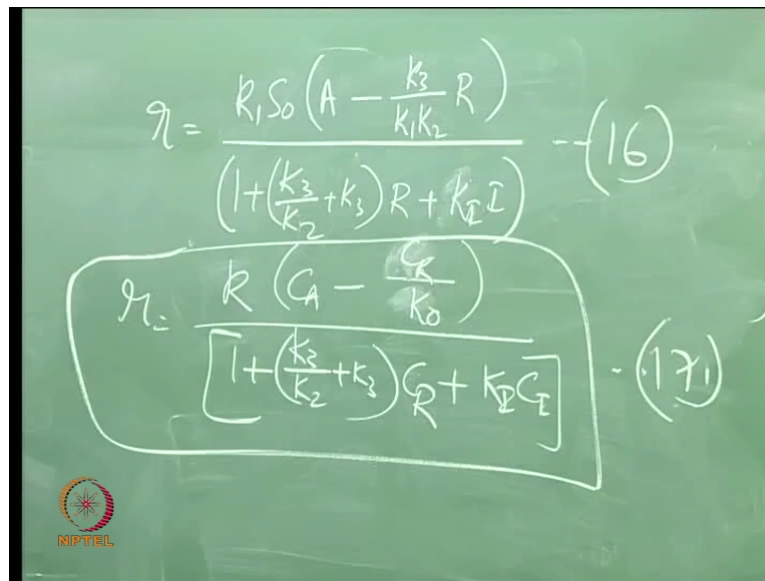 r = k₁S₀(A − K₃/(K₁K₂) R) / (1+(K₃/K₂+K₃)R + K_I I) --(16)
r = k(C_A − C_R/K₀) / [1+(K₃/K₂+K₃)C_R + K_I C_I] -(17)
NPTEL